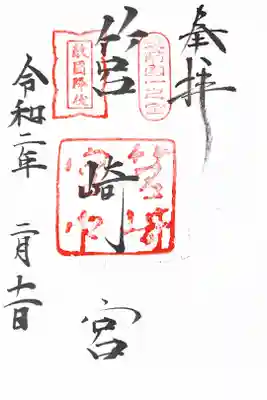 奉拝
筑前國一之宮
敵國降伏
筥崎宮
令和二年 二月十一日